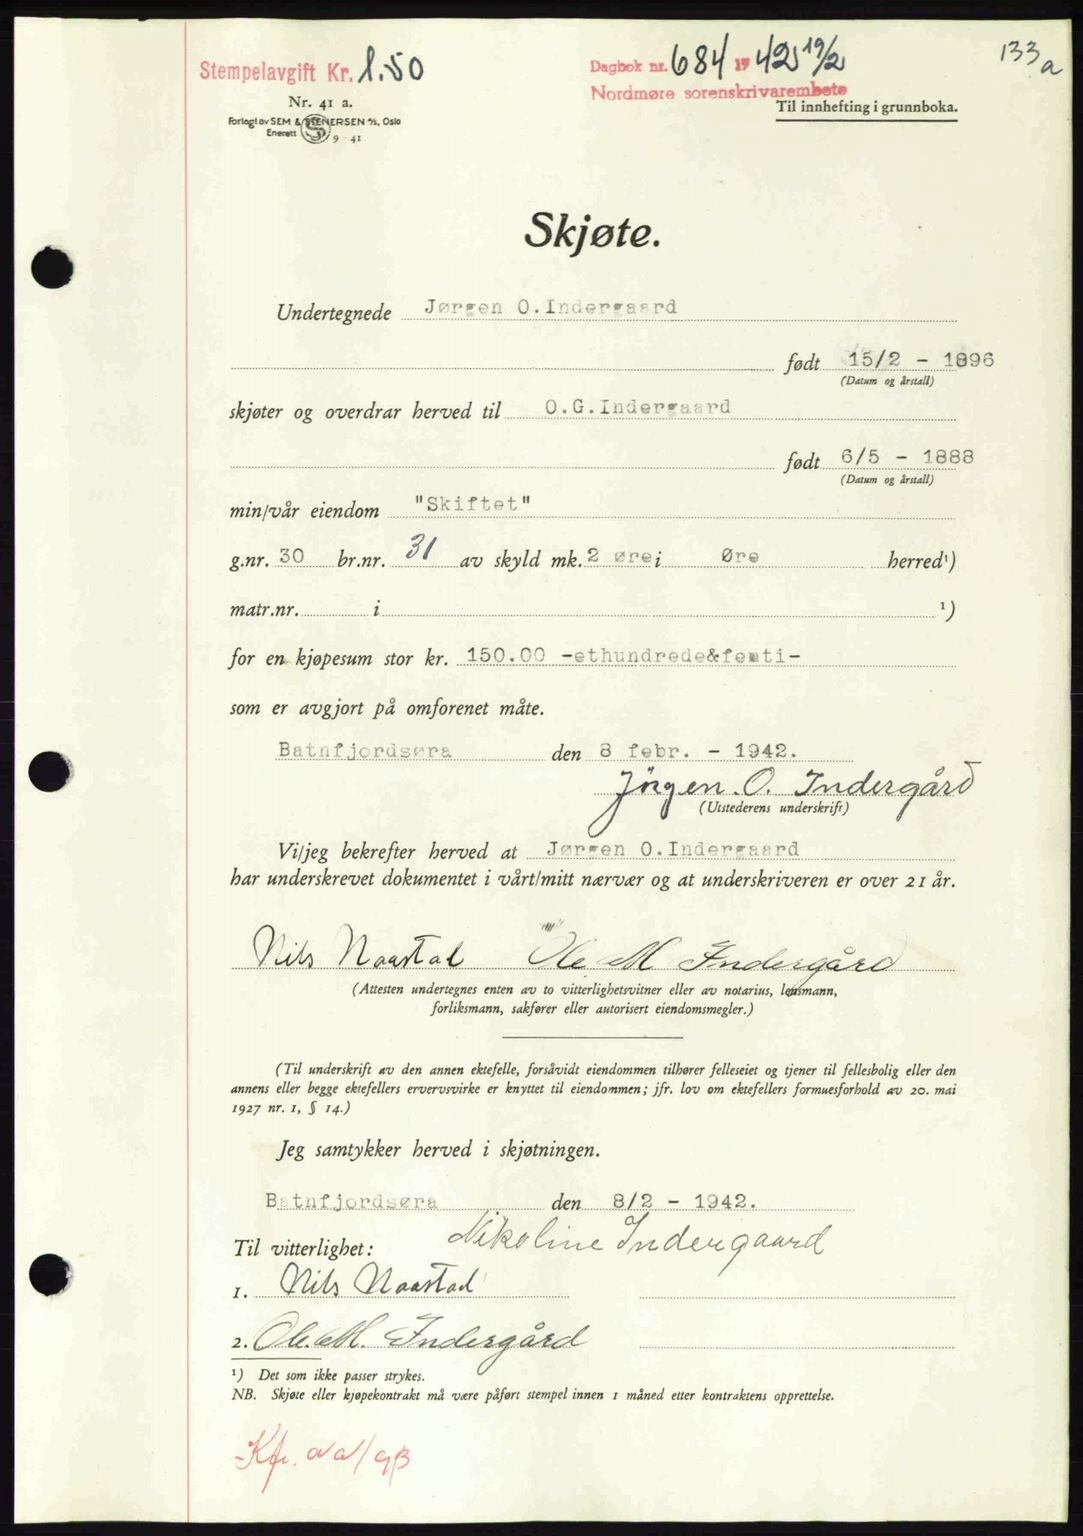 133 a
Stempelavgift Kr. 1.50
Dagbok nr. 684 1942 19/2
Nordmøre sorenskrivarembete
Nr. 41 a.
Til innhefting i grunnboka.
Forlagt av SEM & STENERSEN A/S, Oslo
Enerett S 9 - 41
Skjøte.
Undertegnede Jørgen O.Indergaard
født 15/2 - 1896
(Datum og årstall)
skjøter og overdrar herved til O.G.Indergaard
født 6/5 - 1888
(Datum og årstall)
min/vår eiendom "Skiftet"
g.nr. 30 br.nr. 31 av skyld mk. 2 øre i Øre herred¹)
matr.nr. i ¹)
for en kjøpesum stor kr. 150.00 -ethundrede&femti-
som er avgjort på omforenet måte.
Batnfjordsøra den 8 febr. - 1942.
Jörgen. O. Indergård
(Utstederens underskrift)
Vi/jeg bekrefter herved at Jørgen O.Indergaard
har underskrevet dokumentet i vårt/mitt nærvær og at underskriveren er over 21 år.
Nils Naastad Ole M Indergård
(Attesten undertegnes enten av to vitterlighetsvitner eller av notarius, lensmann,
forliksmann, sakfører eller autorisert eiendomsmegler.)
(Til underskrift av den annen ektefelle, forsåvidt eiendommen tilhører felleseiet og tjener til fellesbolig eller den
annens eller begge ektefellers ervervsvirke er knyttet til eiendommen; jfr. lov om ektefellers formuesforhold av 20. mai
1927 nr. 1, § 14.)
Jeg samtykker herved i skjøtningen.
Batnfjordsøra den 8/2 - 1942.
Nikoline Indergaard
Til vitterlighet:
1. Nils Naastad
2. Ole. M. Indergård
¹) Det som ikke passer strykes.
NB. Skjøte eller kjøpekontrakt må være påført stempel innen 1 måned etter kontraktens opprettelse.